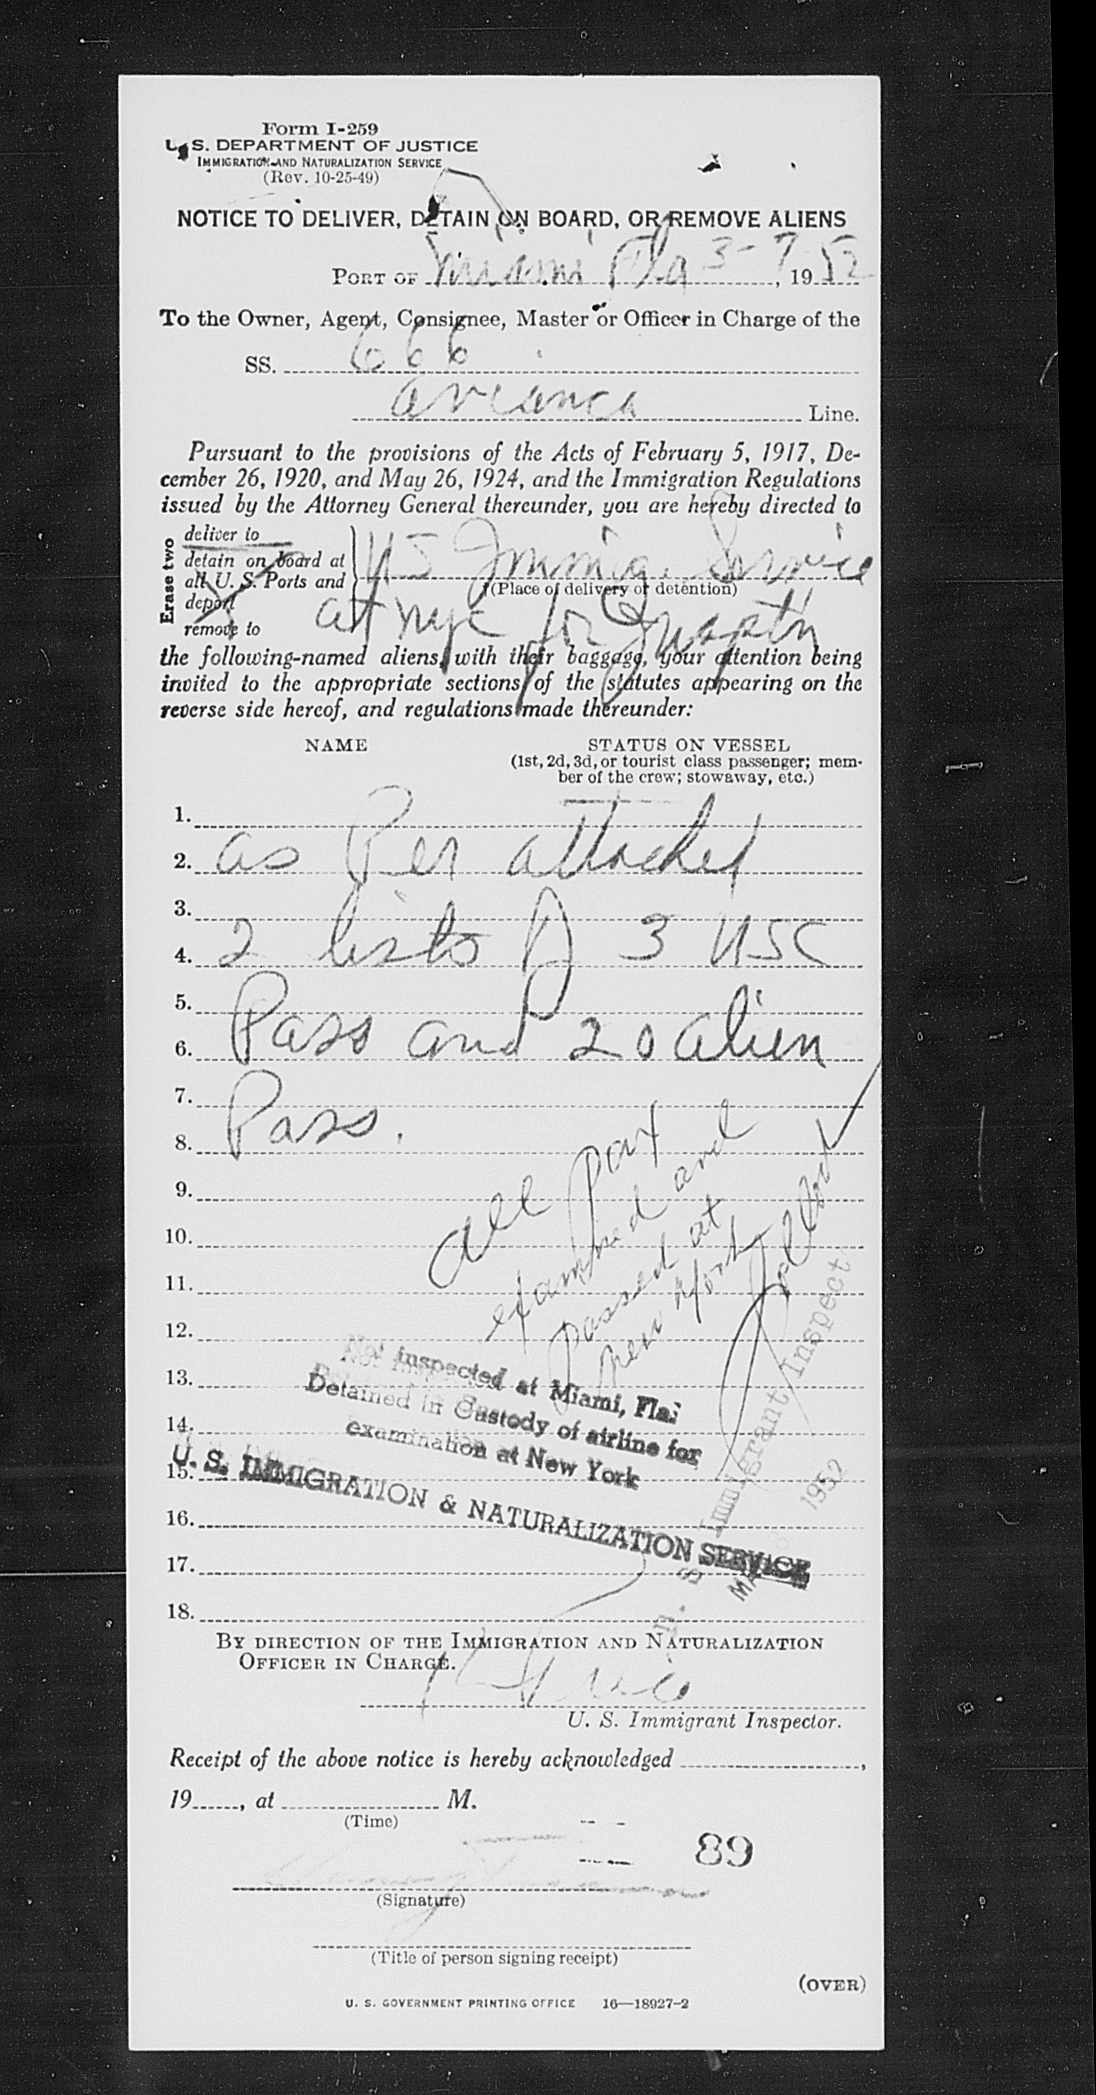 Form I-259
U. S. DEPARTMENT OF JUSTICE
IMMIGRATION AND NATURALIZATION SERVICE
(Rev. 10-25-49)
NOTICE TO DELIVER, DETAIN ON BOARD, OR REMOVE ALIENS
PORT OF Miami Fla 3-7, 1952
To the Owner, Agent, Consignee, Master or Officer in Charge of the
SS. 666
Avianca Line.
Pursuant to the provisions of the Acts of February 5, 1917, De-
cember 26, 1920, and May 26, 1924, and the Immigration Regulations
issued by the Attorney General thereunder, you are hereby directed to
Erase two
deliver to
detain on board at
all U. S. Ports and
deport
remove to
US Immig. Service
(Place of delivery or detention)
at nyc for Inspt'n
the following-named aliens, with their baggage, your attention being
invited to the appropriate sections of the statutes appearing on the
reverse side hereof, and regulations made thereunder:
NAME STATUS ON VESSEL
(1st, 2d, 3d, or tourist class passenger; mem-
ber of the crew; stowaway, etc.)
1.
2. as Per attached
3.
4. 2 lists of 3 USC
5.
6. Pass and 20 alien
7.
8. Pass.
9.
10.
11.
12.
13.
14.
15.
16.
17.
18.
all pax
examined and
passed at
new York
U. S. Immigrant Inspect
1952
Not inspected at Miami, Fla;
Detained in Custody of airline for
examination at New York
U. S. IMMIGRATION & NATURALIZATION SERVICE
BY DIRECTION OF THE IMMIGRATION AND NATURALIZATION
OFFICER IN CHARGE.
U. S. Immigrant Inspector.
Receipt of the above notice is hereby acknowledged ,
19 , at M.
(Time)
89
(Signature)
(Title of person signing receipt)
(OVER)
U. S. GOVERNMENT PRINTING OFFICE 16—18927-2